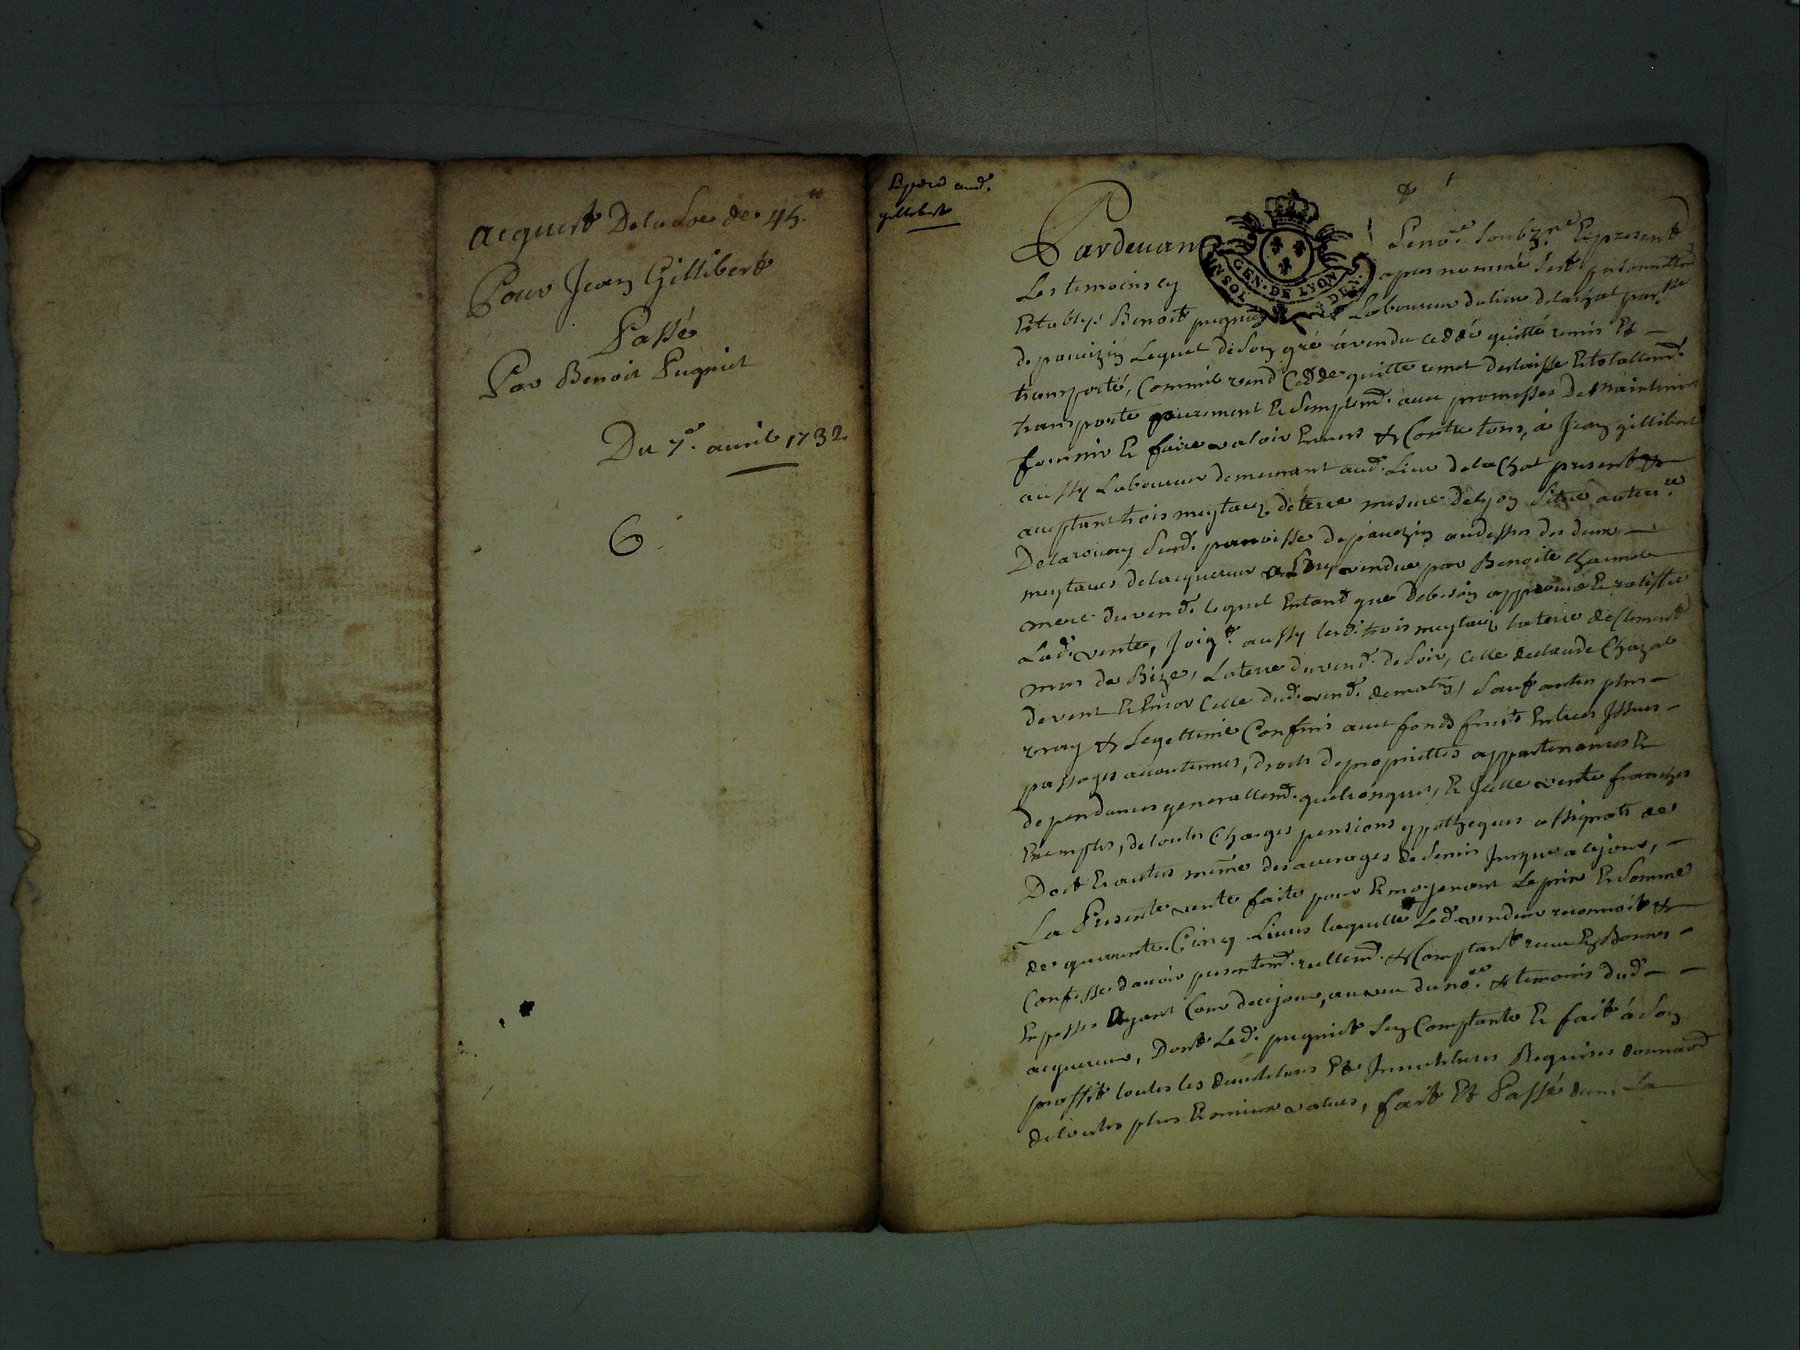 acquist De la Soe de 45ᵗᵗ
Pour Jean Gillibert
Passé
Par Benoit Pugniet
Du 7ᵉ. auril 1732
6
Expedié aud.
gillibert
Pardeuant Le noʳᵉ. soubzⁿᵉ Et present
Les temoins cy apres nommé s'est personnellemᵗ
Etably Benoit pugniet Laboureur du lieu de lachat parᵒⁱˢˢᵉ
de pauezin Lequel de son gré à vendu ceddé quitté remis Et
transporté, Comme vend Cedde quitte remet deslaisse Et totallemᵗ.
transporte purement Et simplemᵗ. auec promesses De Maintenir
fournir Et faire valoir Enuers & Contre tous, à Jean gillibert
aussy Laboureur demeurant aud. Lieu de la Chat present &
acceptant trois meytaux de terre mesure de lyon Situé au terʳᵉ
De la rouery Surd. parroisse de pauezin au dessus des deux
meytaux de lacquereur vendue par Benoite Chaumet
mere du vend. lequel Entant que de besoin approuue Et ratiffie
Lad. vente, Joigᵗ. aussy lesd. trois meytaux la terre de Clement
mas de Bize, La terre du vend. de soir, Celle de claude Chazal
de vent Et Encor Celle dud. vend. de matin, Sauf autres plus
vray & Legettime Confins auec fonds fruits Entrees Issues
passages accoutumes, droits de proprietés appartenances Et
dependances generallemᵗ. quelconques, Et Jcelle vente franches
Exemptes, de toutes Charges pensions yppotheques assignats de
Doct Et autres même des arrerages de Seruis Jusque a ce jour,
La Presente vente faite pour Et moyenant Le prix Et Somme
de quarante Cinq Liures laquelle Led. vendeur reconnoit &
Confesse dauoir presentemᵗ. reellemᵗ. & Comptant receu En Bonnes
Especes Ayant Cour de ce jour, au veu du noʳᵉ. & temoins dud.
acquereur, Dont Led. pugniet sen Contante Et fait à son
proffit toutes les deuestitures Et Jnuestitures Requises donnant
de toutes plus Et mieux values, fait Et Passé dans La